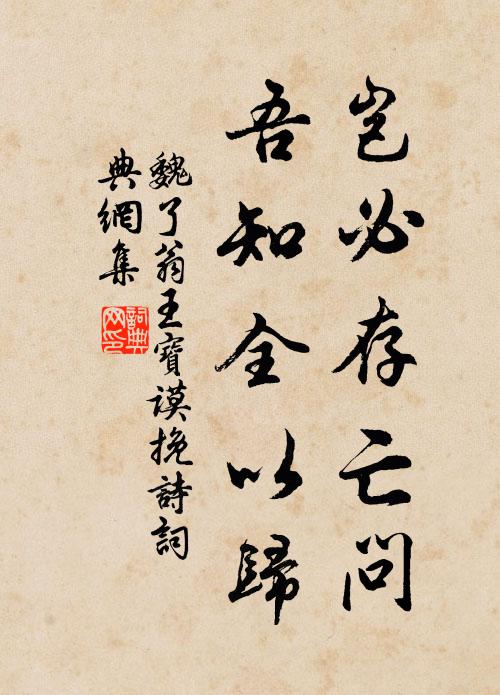 豈必存亡問
吾知全以歸
魏了翁王寶謨挽詩詞
典網集
詞典網印